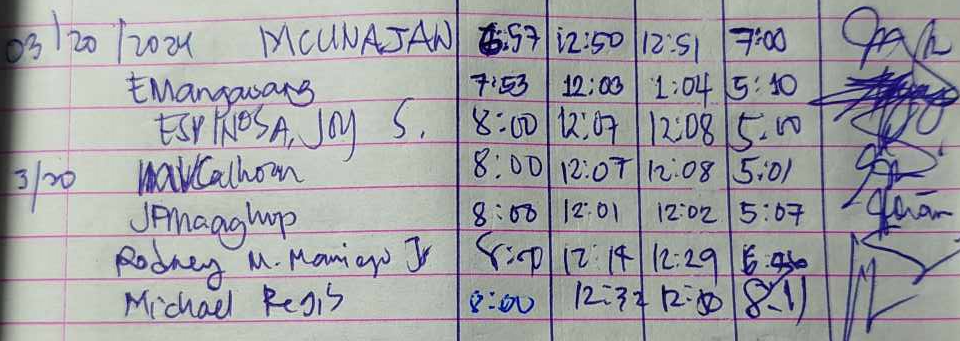 03/20/2024 MCUNAJAN 6:57 12:50 12:51 7:00
EMangawang 7:53 12:03 1:04 5:10
ESPINOSA, JOY S. 8:00 12:07 12:08 5:00
3/20 Calhoun 8:00 12:07 12:08 5:01
8:00 12:01 12:02 5:07
Rodney M. Maniego Jr 8:00 12:14 12:29
Michael Regis 8:00 12:32 8:11